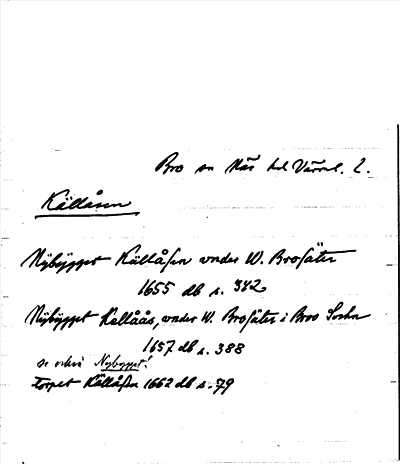 Bro sn Näs hd Värml. l.
Källåsen
Nÿbÿgget Källåsen under W. Brosäter
1655 db s. 342
Nÿbÿgget Källåås, under W. Brosäter i Broo Sochn
1657 db s. 388
se också Nybygget!
torpet Källåsen 1662 db s. 79